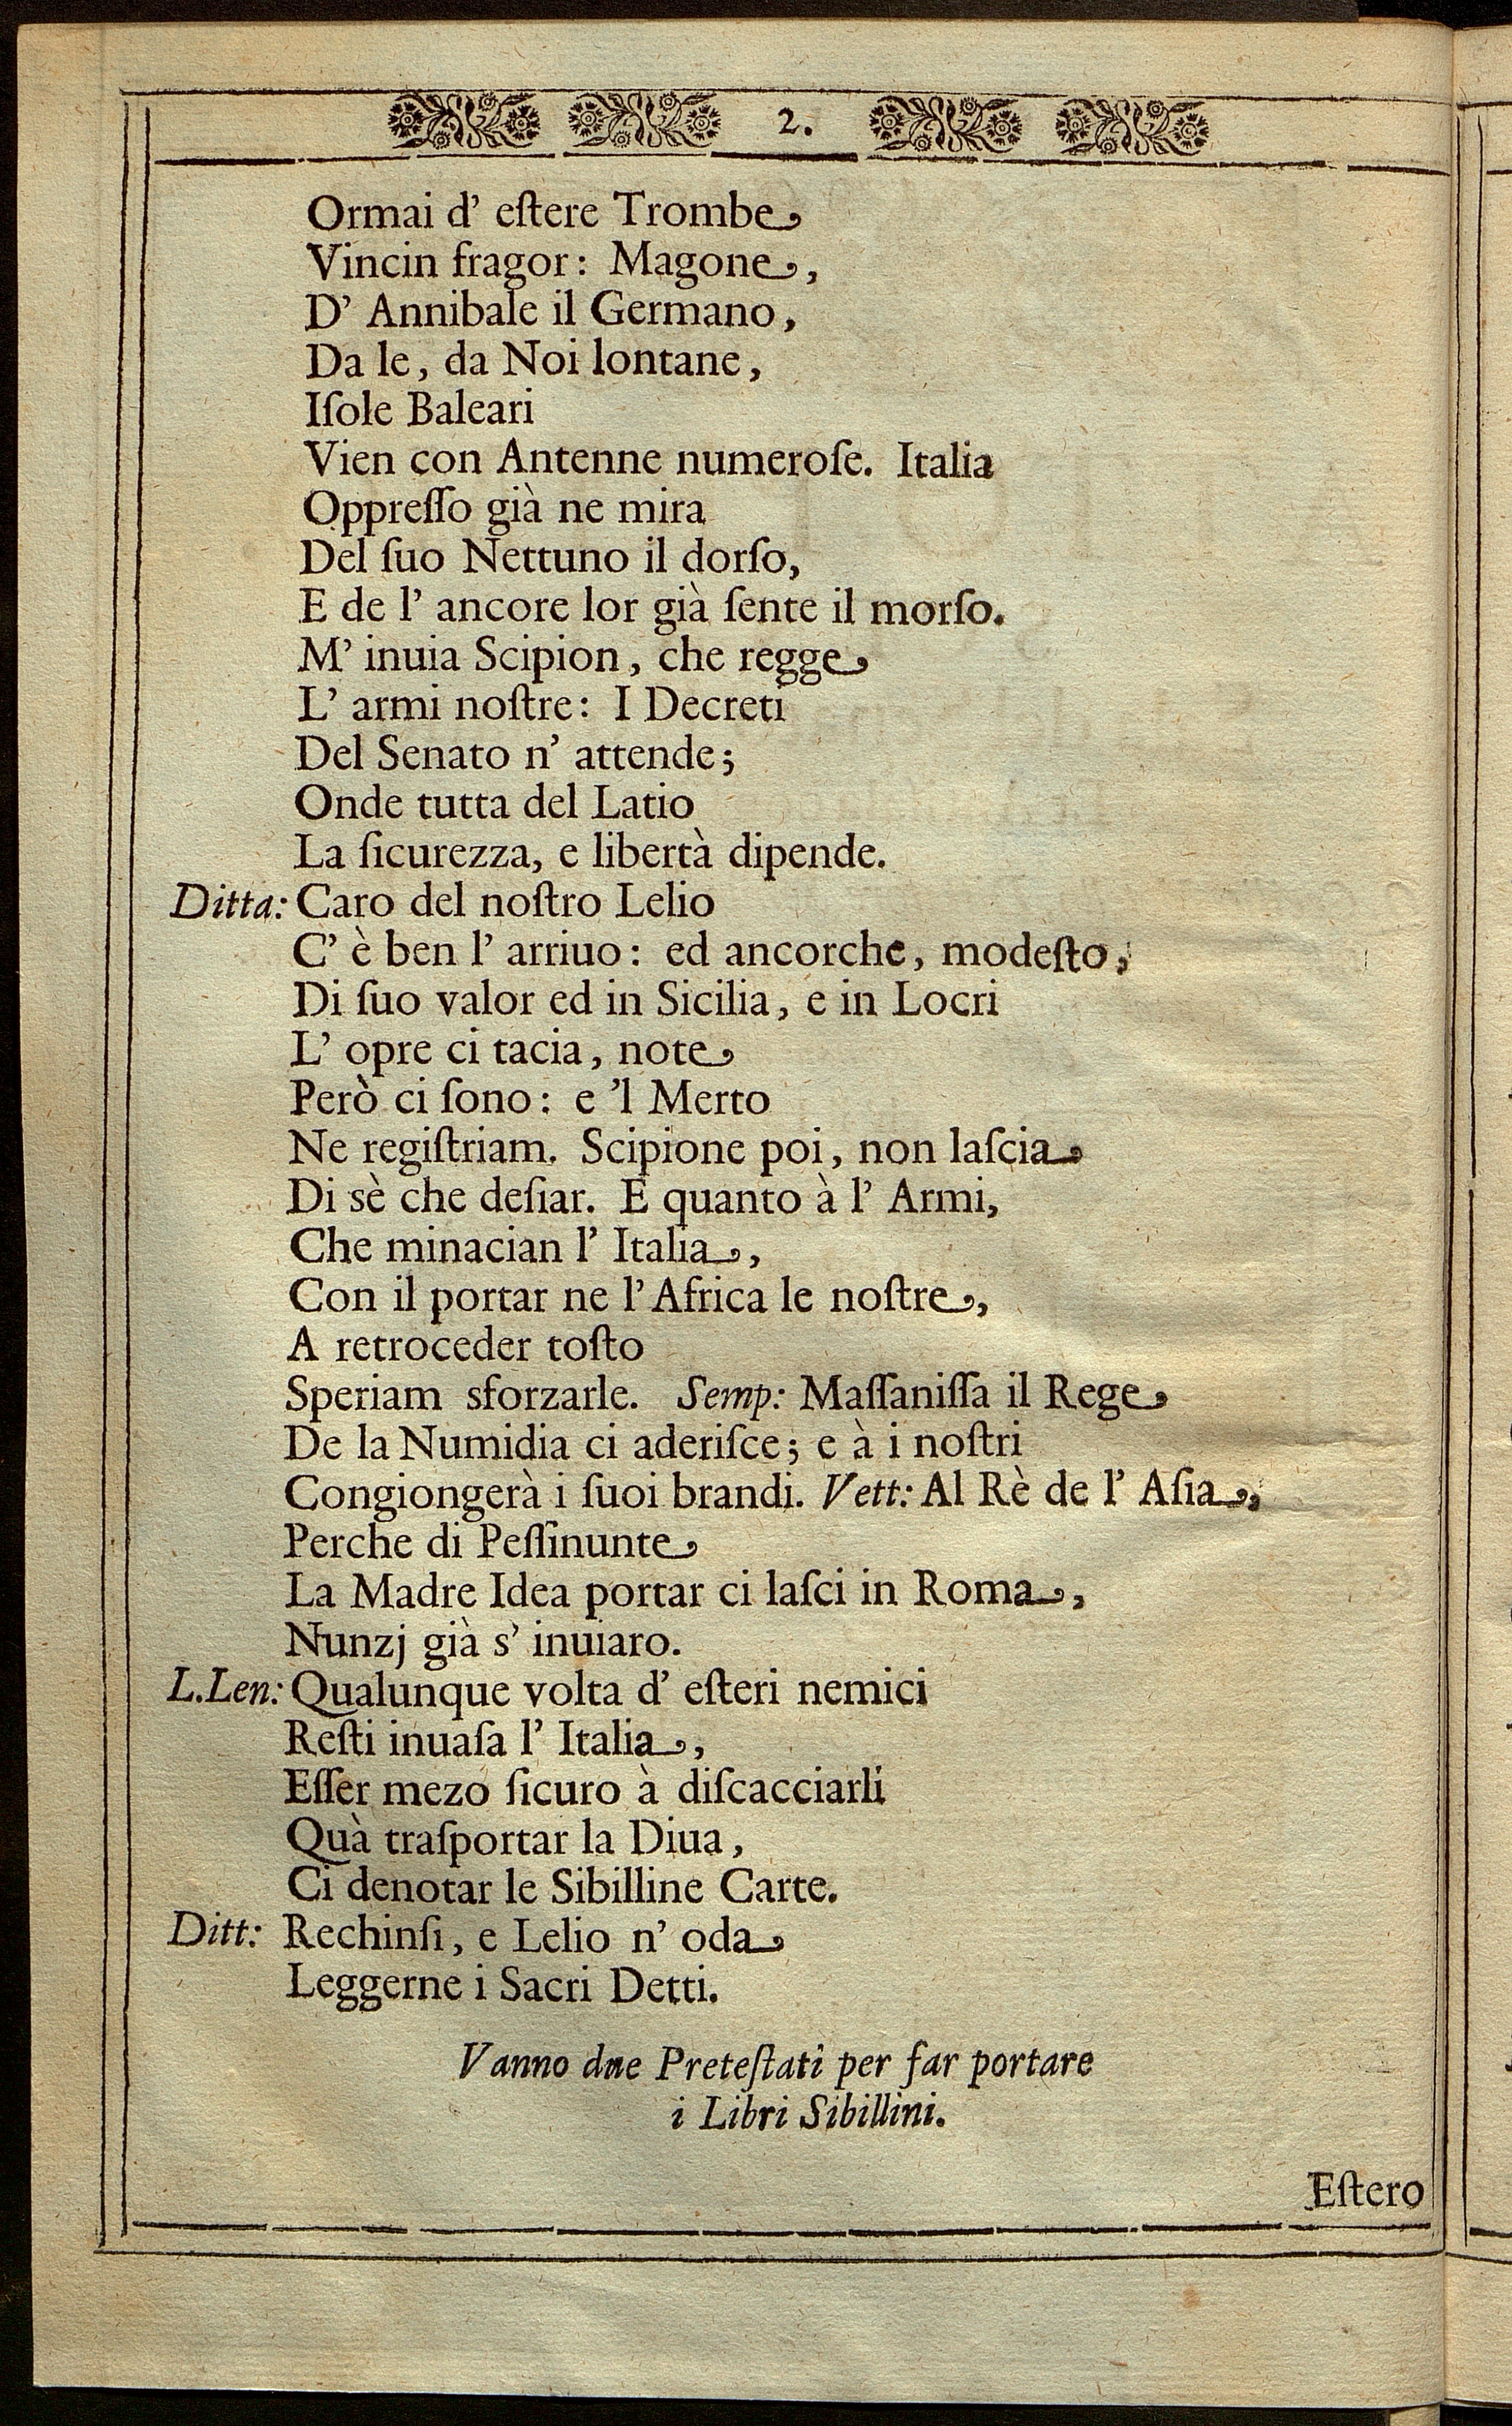 2.
Ormai d' eſtere Trombe
Vincin fragor: Magone,
D' Annibale il Germano,
Da le, da Noi lontane,
Iſole Baleari
Vien con Antenne numeroſe. Italia
Oppreſſo già ne mira
Del ſuo Nettuno il dorſo,
E de l' ancore lor già ſente il morſo.
M' inuia Scipion, che regge
L' armi noſtre: I Decreti
Del Senato n' attende;
Onde tutta del Latio
La ſicurezza, e libertà dipende.
Ditta: Caro del noſtro Lelio
C' è ben l' arriuo: ed ancorche, modeſto,
Di ſuo valor ed in Sicilia, e in Locri
L' opre ci tacia, note
Però ci ſono: e 'l Merto
Ne regiſtriam. Scipione poi, non laſcia
Di sè che deſiar. E quanto à l' Armi,
Che minacian l' Italia,
Con il portar ne l' Africa le noſtre,
A retroceder toſto
Speriam sforzarle. Semp: Maſſaniſſa il Rege
De la Numidia ci aderiſce; e à i noſtri
Congiongerà i ſuoi brandi. Vett: Al Rè de l' Aſia,
Perche di Peſſinunte
La Madre Idea portar ci laſci in Roma,
Nunzj già s' inuiaro.
L.Len: Qualunque volta d' eſteri nemici
Reſti inuaſa l' Italia,
Eſſer mezo ſicuro à diſcacciarli
Quà traſportar la Diua,
Ci denotar le Sibilline Carte.
Ditt: Rechinſi, e Lelio n' oda
Leggerne i Sacri Detti.
Vanno due Preteſtati per far portare
i Libri Sibillini.
Eſtero